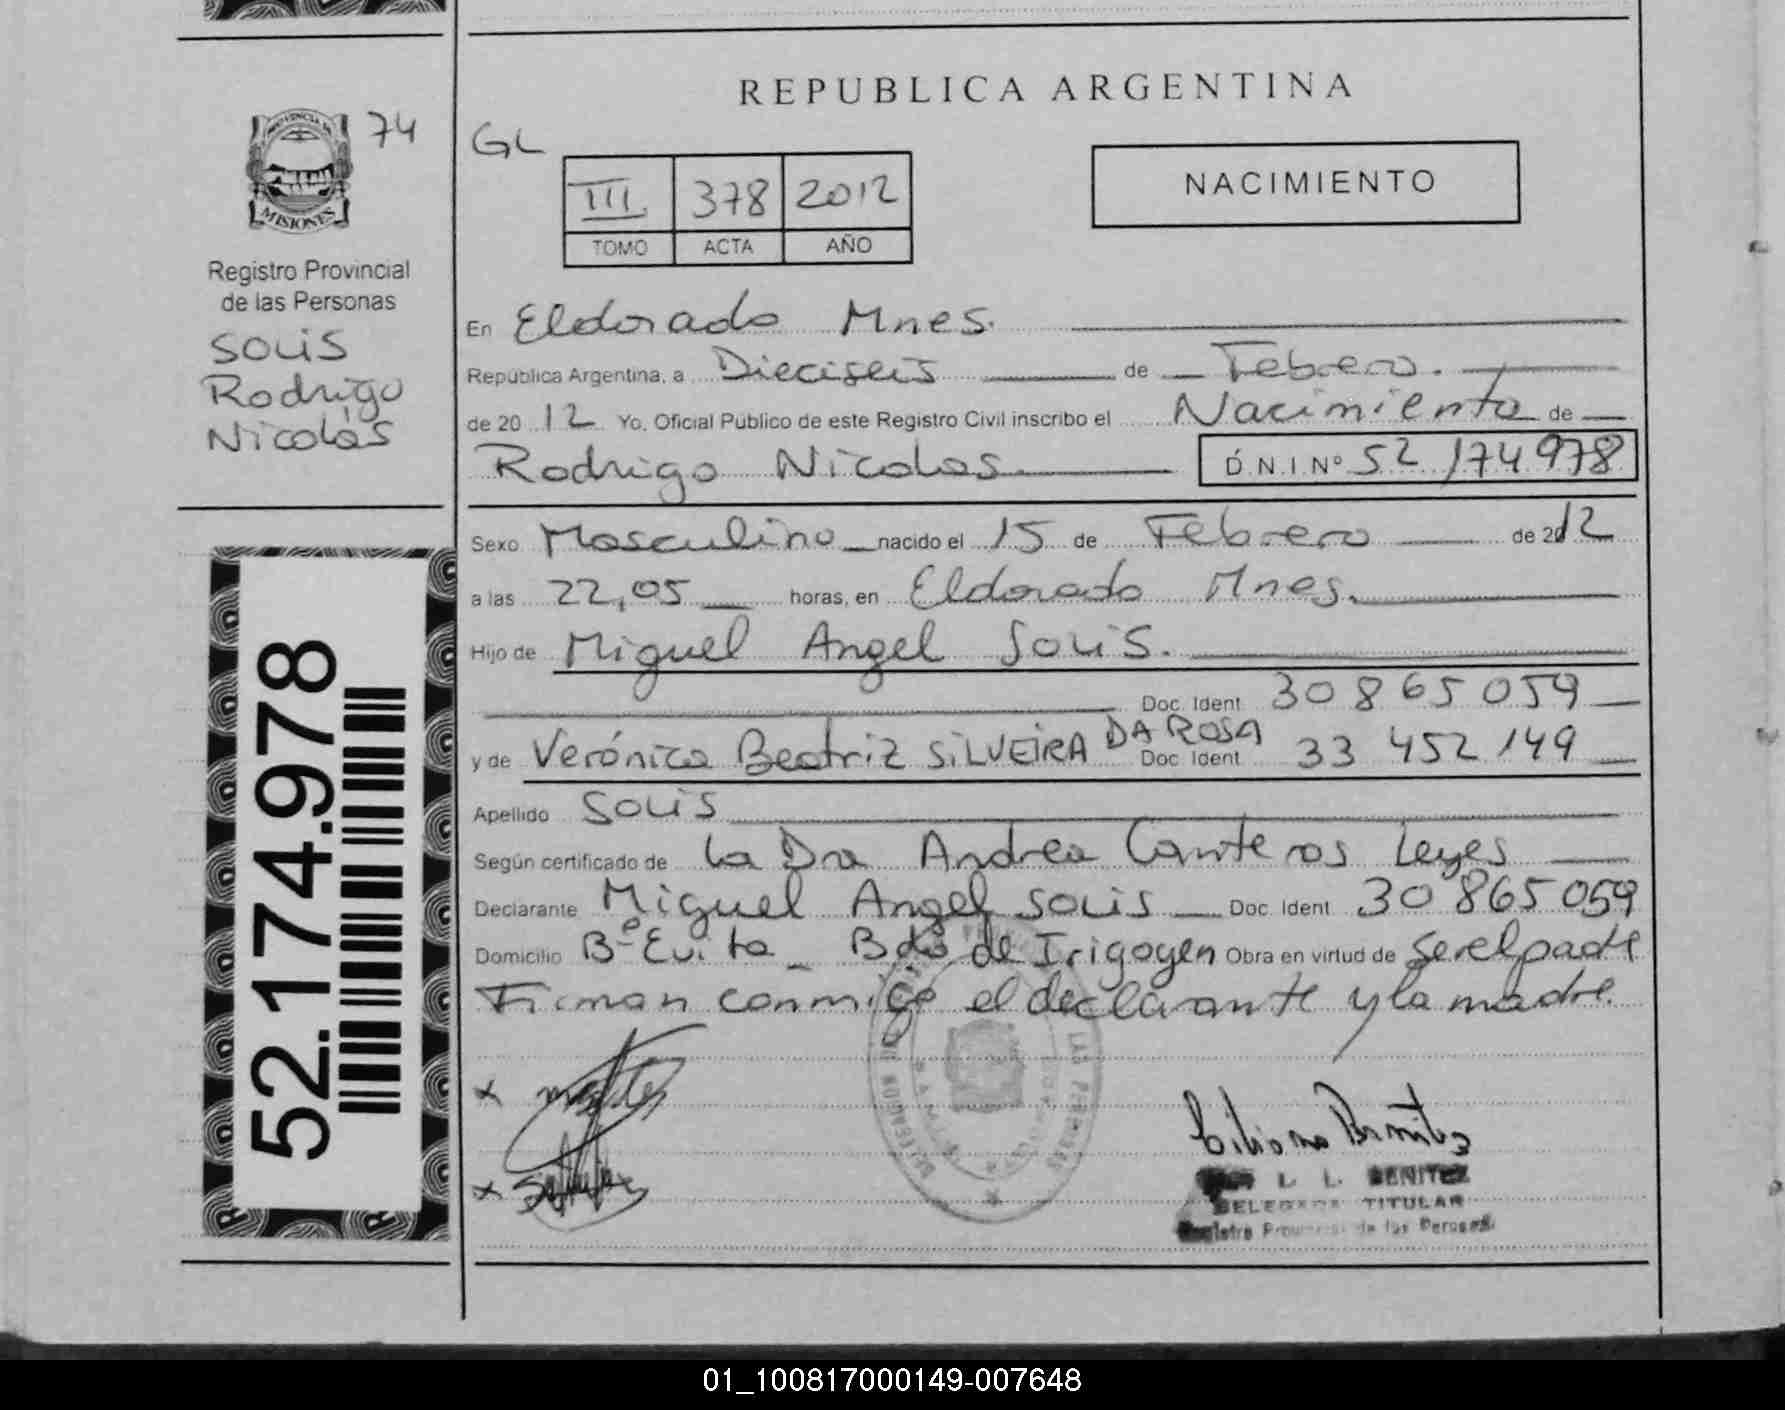 REPUBLICA ARGENTINA
PROVINCIA DE
MISIONES
74
GL
III 378 2012
TOMO ACTA AÑO
NACIMIENTO
Registro Provincial
de las Personas
SOLIS
Rodrigo
Nicolás
52.174.978
En Eldorado Mnes.
República Argentina, a Dieciseis de Febrero.
de 20 12 Yo, Oficial Público de este Registro Civil inscribo el Nacimiento de
Rodrigo Nicolas D.N.I.Nº 52 174 978
Sexo Masculino nacido el 15 de Febrero de 2012
a las 22,05 horas, en Eldorado Mnes.
Hijo de Miguel Angel Solis.
Doc. Ident. 30 865 059
y de Verónica Beatriz SILVEIRA DA ROSA Doc. Ident. 33 452 149
Apellido SOLIS
Según certificado de La Dra Andrea Canteros Leyes
Declarante Miguel Angel SOLIS Doc. Ident. 30 865 059
Domicilio Bº Evita - Bdo de Irigoyen Obra en virtud de ser el padre
Firman conmigo el declarante y la madre.
L. L. BENITEZ
DELEGADA TITULAR
Registro Provincial de las Personas
01_100817000149-007648